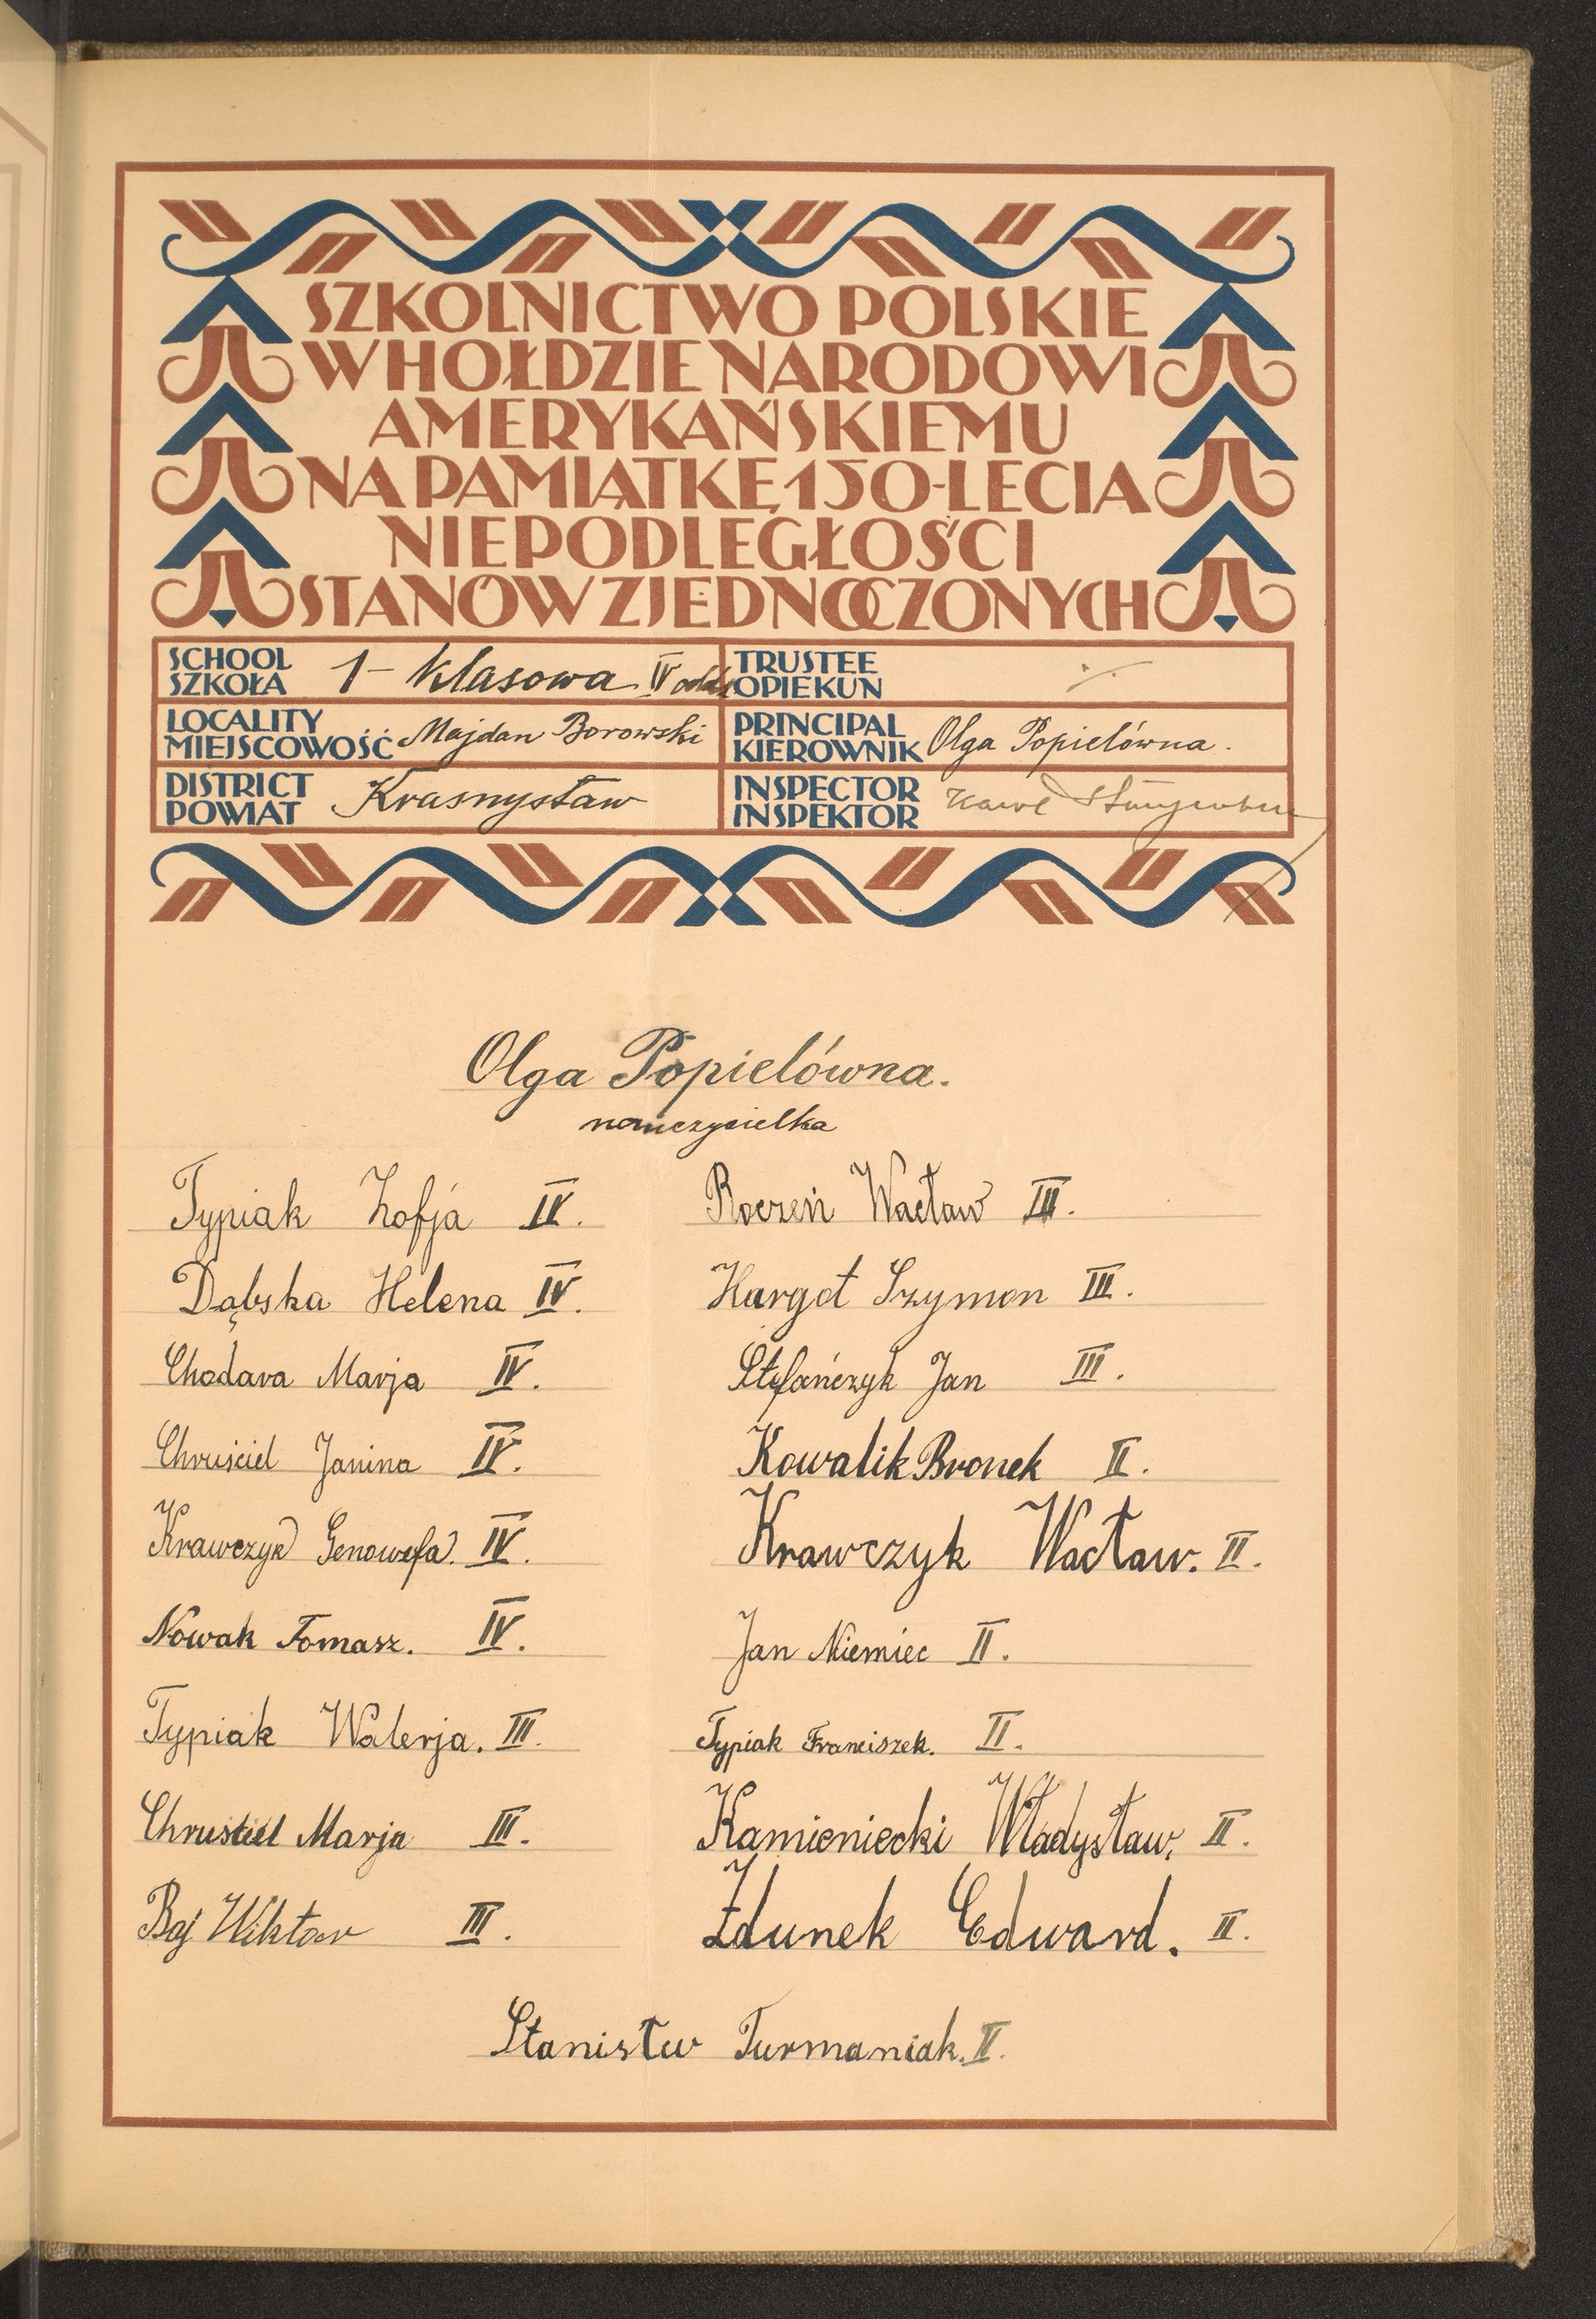 SZKOLNICTWO POLSKIE
W HOŁDZIE NARODOWI
AMERYKAŃSKIEMU
NA PAMIĄTKĘ 150-LECIA
NIEPODLEGŁOŚCI
STANÓW ZJEDNOCZONYCH
SCHOOL
SZKOŁA
1- klasowa IV oddz
TRUSTEE
OPIEKUN
LOCALITY
MIEJSCOWOŚĆ
Majdan Borowski
PRINCIPAL
KIEROWNIK
Olga Popielówna.
DISTRICT
POWIAT
Krasnystaw
INSPECTOR
INSPEKTOR
Olga Popielówna.
nauczycielka
Typiak Zofja IV.
Dąbska Helena IV.
Chodara Marja IV.
Chruściel Janina IV.
Krawczyk Genowefa. IV.
Nowak Tomasz. IV.
Typiak Walerja. III.
Chruściel Marja III.
Baj Wiktor III.
Roczeń Wacław III.
Hargot Szymon III.
Stefańczyk Jan III.
Kowalik Bronek II.
Krawczyk Wacław. II.
Jan Niemiec II.
Typiak Franciszek. II.
Kamieniecki Władysław. II.
Żdunek Edward. II.
Stanisłw Turmaniak. II.